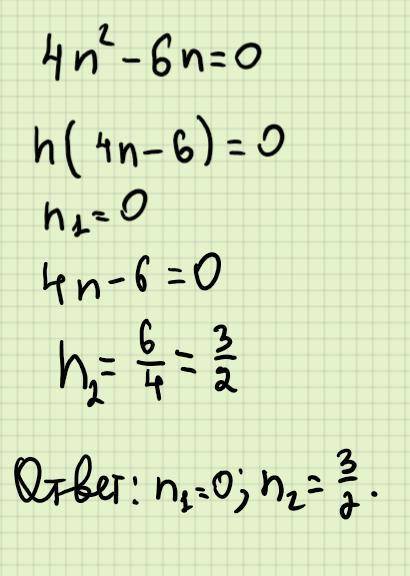 4n² - 6n = 0
n(4n - 6) = 0
n₁ = 0
4n - 6 = 0
n₂ = 6/4 = 3/2
Ответ: n₁ = 0; n₂ = 3/2.